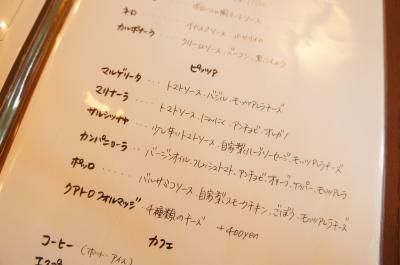 ネロ ‥‥ イカスミソース
カルボナーラ ‥‥ クリームソース、ベーコン、黒こしょう
ピッツァ
マルゲリータ ‥‥ トマトソース、バジル、モッツァレラチーズ
マリナーラ ‥‥ トマトソース、にんにく、アンチョビ、オレガノ
サルシッチャ ‥‥ 少し辛いトマトソース、自家製ハーブソーセージ、モッツァレラチーズ
カンパニョーラ ‥‥ バージンオイル、フレッシュトマト、アンチョビ、オリーブ、ケッパー、モッツァレラ
ポッロ ‥‥ バルサミコソース、自家製スモークチキン、ごぼう、モッツァレラチーズ
クアトロフォルマッジ ‥ 4種類のチーズ +400yen
カフェ
コーヒー (ホット・アイス)